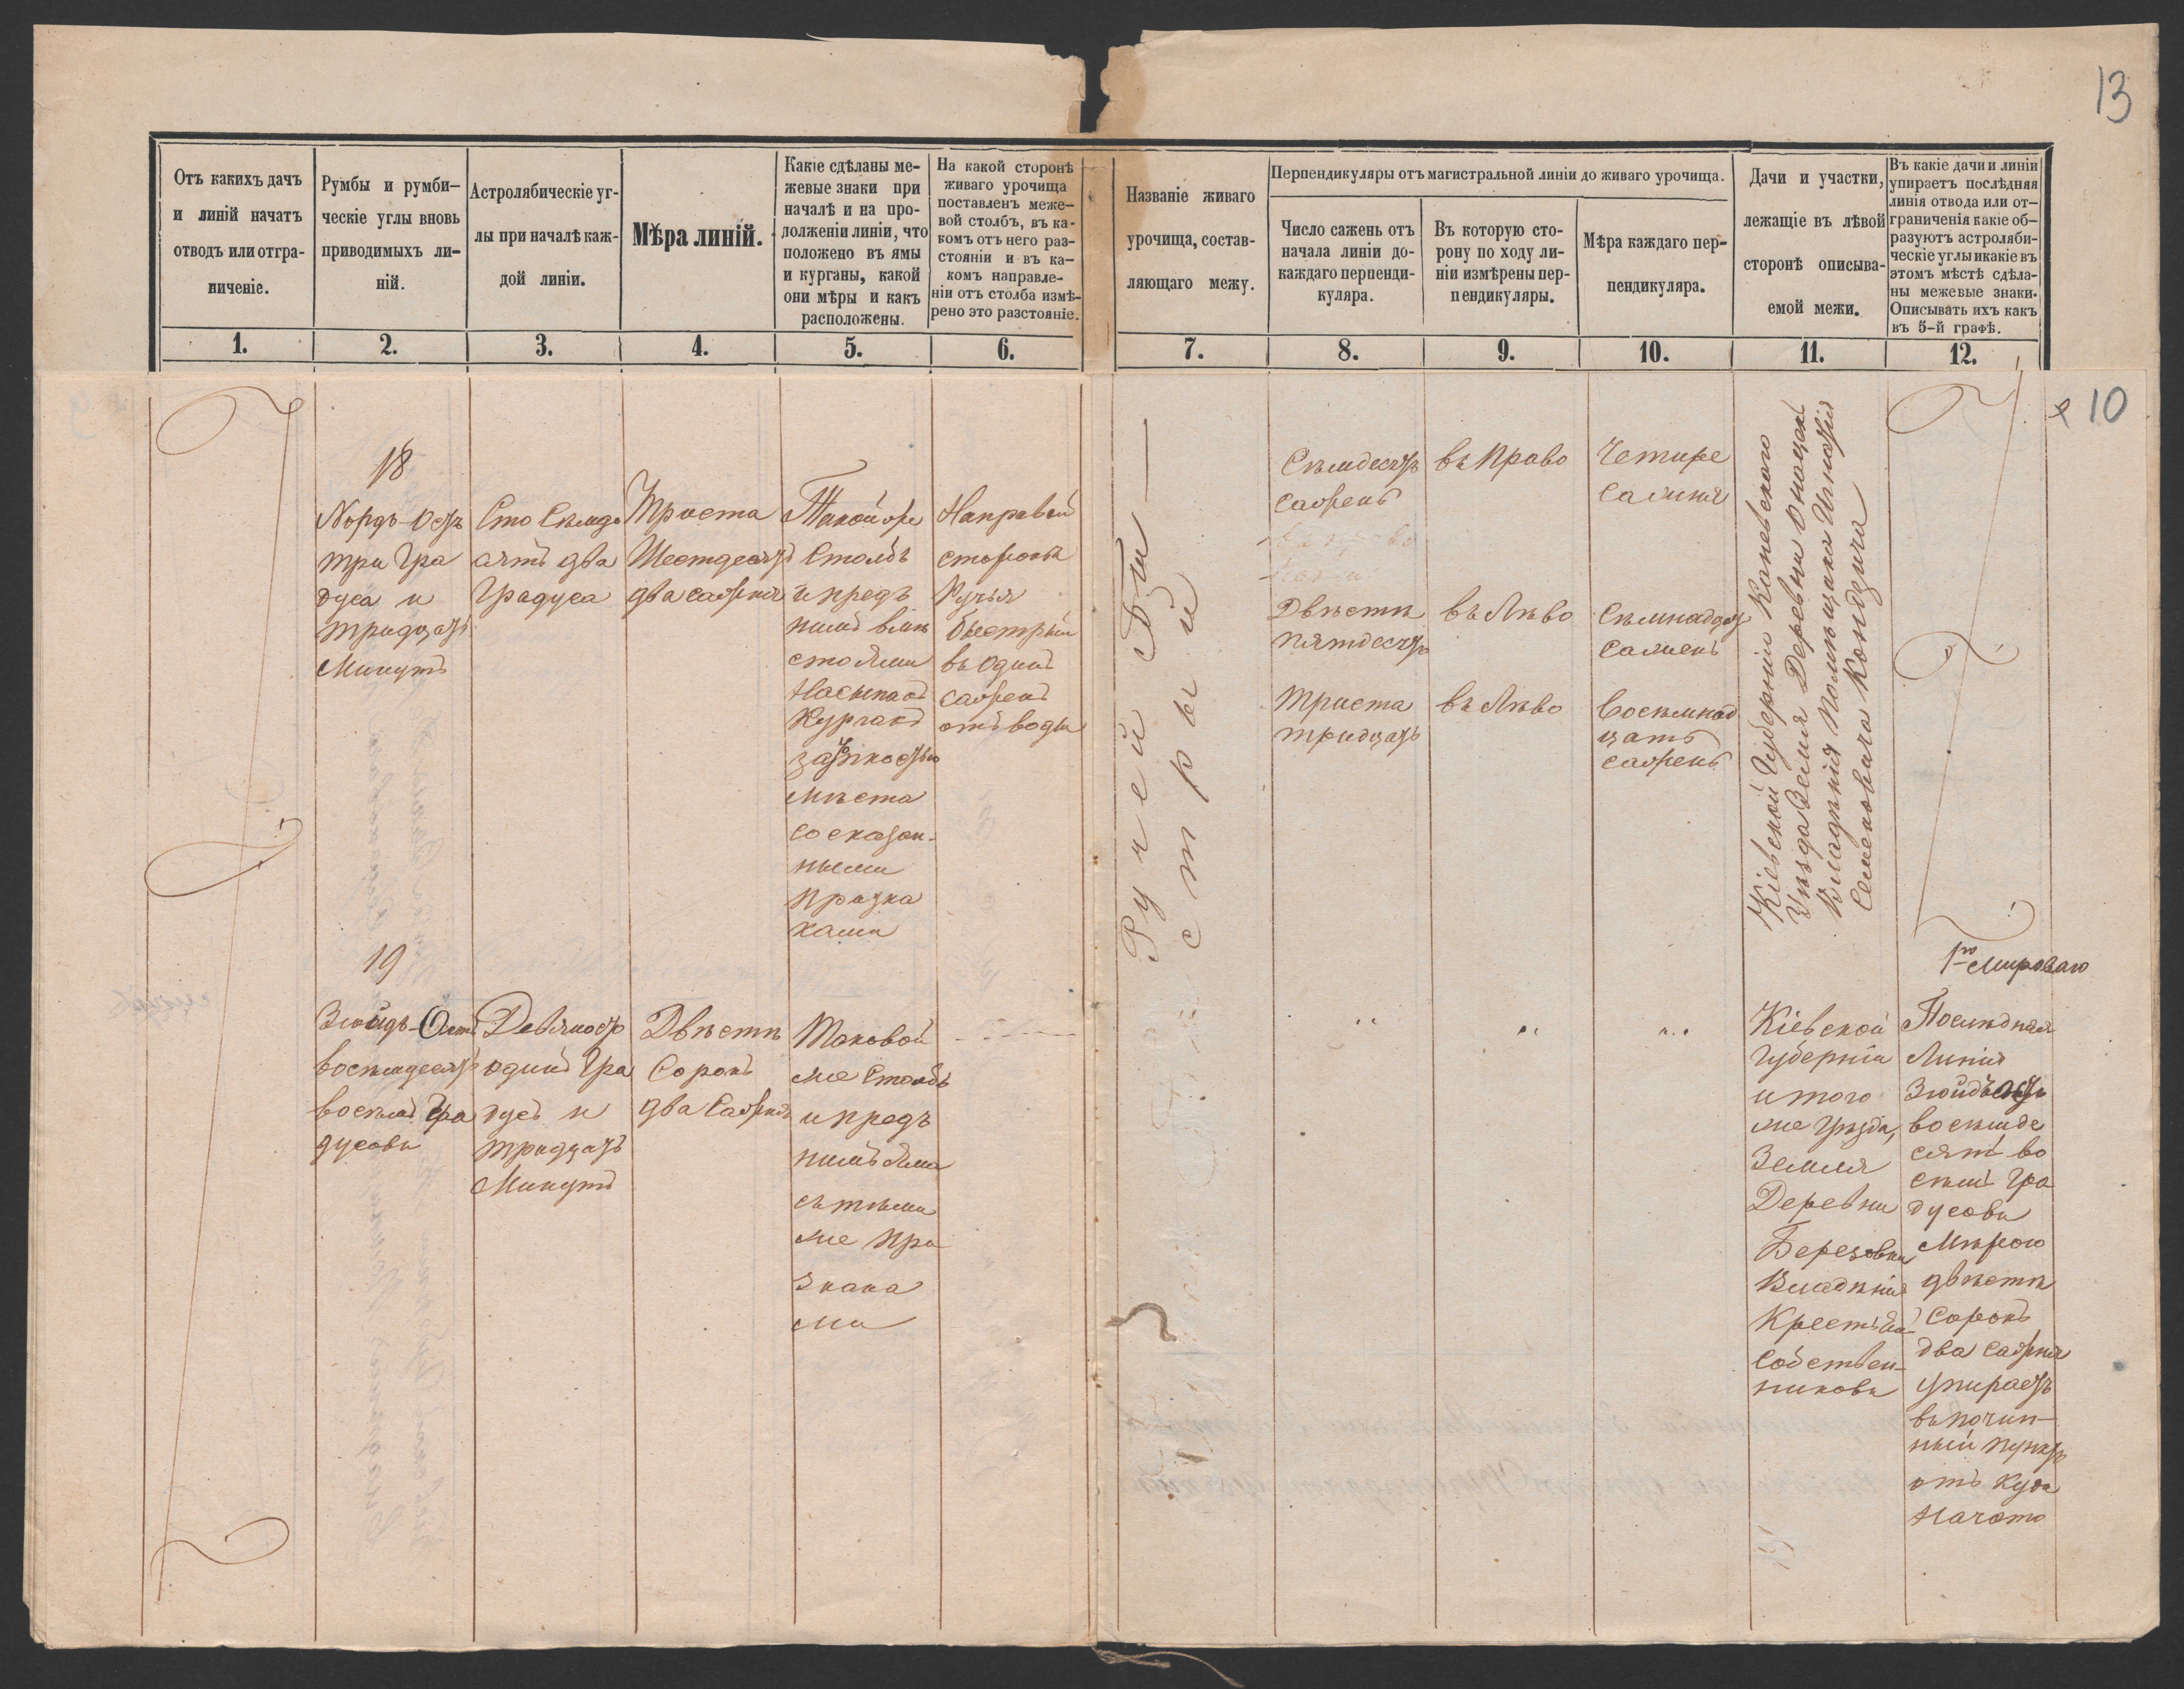 13
Отъ какихъ дачъ
и линій начатъ
отводъ или отгра-
ниченіе.
Румбы и румби-
ческіе углы вновь
приводимыхъ ли-
ній.
Астролябическіе уг-
лы при началѣ каж-
дой линіи.
Мѣра линій.
Какіе сдѣланы ме-
жевые знаки при
началѣ и на про-
долженіи линіи, что
положено въ ямы
и курганы, какой
они мѣры и какъ
расположены.
На какой сторонѣ
живаго урочища
поставленъ меже-
вой столбъ, въ ка-
комъ отъ него раз-
стояніи и въ ка-
комъ направле-
ніи отъ столба измѣ-
рено это разстояніе.
Названіе живаго
урочища, состав-
ляющаго межу.
Перпендикуляры отъ магистральной линіи до живаго урочища.
Число сажень отъ
начала линіи до-
каждаго перпенди-
куляра.
Въ которую сто-
рону по ходу ли-
ніи измѣрены пер-
пендикуляры.
Мѣра каждаго пер-
пендикуляра.
Дачи и участки,
лежащіе въ лѣвой
сторонѣ описыва-
емой межи.
Въ какіе дачи и линіи
упираетъ послѣдняя
линія отвода или от-
граниченія какіе об-
разуютъ астроляби-
ческіе углы и какіе въ
этомъ мѣстѣ сдѣла-
ны межевые знаки.
Описывать ихъ какъ
въ 5-й графѣ.
1.
2.
3.
4.
5.
6.
7.
8.
9.
10.
11.
12.
10
18
Нордъ-Остъ
три гра
дуса и
тридцать
Минутъ
Сто Семьде
сятъ два
Градуса
Триста
Шестдесятъ
два сажня
Такой же
Столбъ
и предъ
нимъ вмѣ
сто ямы
Насыпанъ
Курганъ
мѣста
со сказан-
ными
призна
ками
На правой
сторонѣ
Ручья
Быстрый
въ одинъ
сажень
отъ воды
Ручей Бы
стрый
Семдесятъ
сажень
въ Право
Четире
сажня
Двѣсти
пятдесятъ
въ Лѣво
Семнадцать
сажень
Триста
тридцать
въ Лѣво
восемнад
цать
сажень
Кіевской Губерніи Каневскаго
Уѣзда Земля Деревни
Владѣнія Помѣщика Игнатія
Семеновича
19
Зюйдъ-Остъ
восемдесятъ
восемь Гра
дусовъ
Девяносто
одинъ Гра
дусъ и
тридцать
Минутъ
Двѣсти
Сорокъ
два Сажня
Таковой
же Столбъ
и предъ
нимъ яма
съ тѣми
же при
знака
ми
Кіевской
Губерніи
и того
же Уѣзда,
Земля
Деревни
Березовки
Владѣнія
Крестьянъ
Собствен-
никовъ
1го Мироваго
Послѣдняя
Линія
Зюйдъ Остъ
восемьде
сятъ во
семь Гра
дусовъ
Мѣрою
двѣсти
сорокъ
два сажня
упираетъ
въ почин-
ный пунктъ
отъ куда
начато